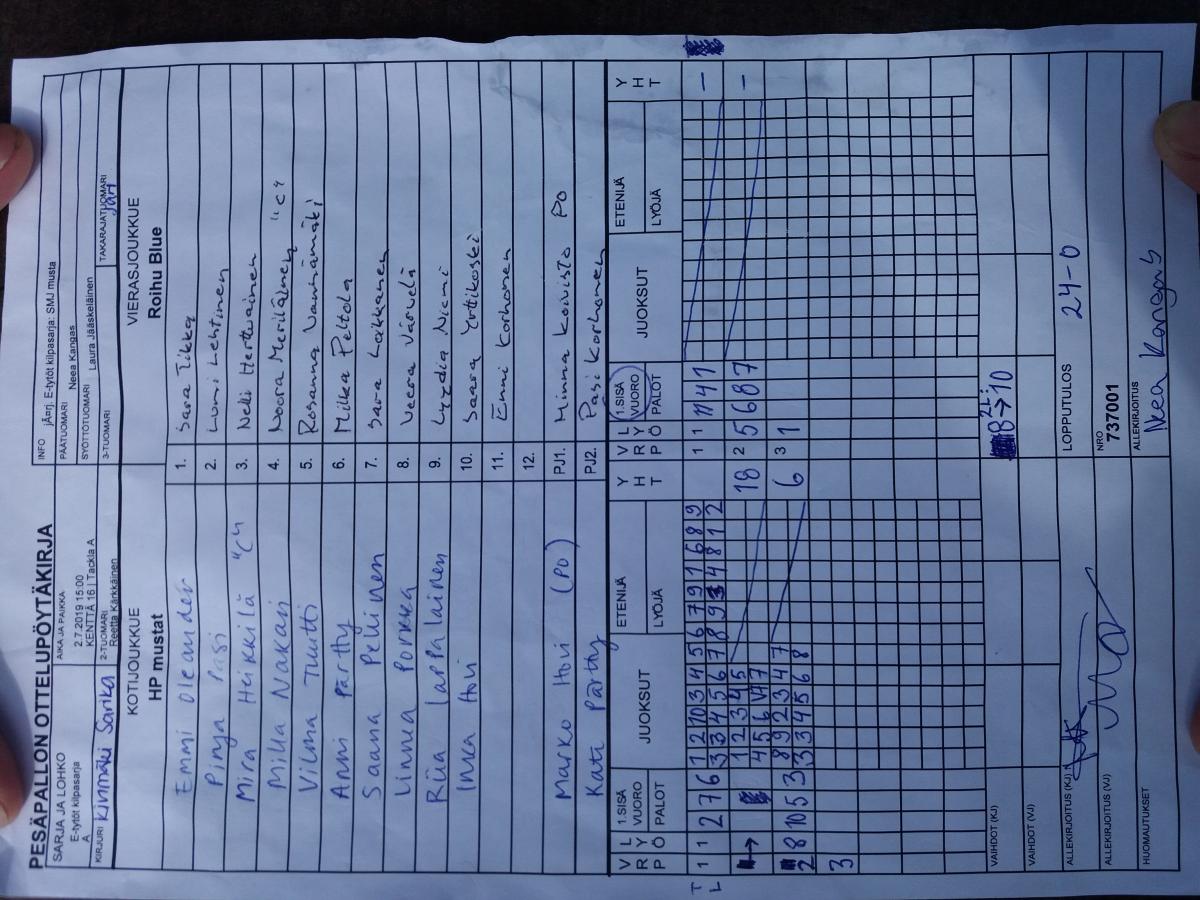 PESÄPALLON OTTELUPÖYTÄKIRJA
SARJA JA LOHKO
E-tytöt kilpasarja
A
AIKA JA PAIKKA
2.7.2019 15:00
KENTTÄ 16 | Tackla A
INFO jÄ¤rj. E-tytöt kilpasarja: SMJ musta
PÄÄTUOMARI Neea Kangas
SYÖTTÖTUOMARI Laura Jääskeläinen
KIRJURI Kinmäki Sarika
2-TUOMARI Reetta Kärkkäinen
3-TUOMARI
TAKARAJATUOMARI
KOTIJOUKKUE
HP mustat
VIERASJOUKKUE
Roihu Blue
Emmi Oleander 1. Sara Tikka
Pinja Pasi 2. Lumi Lehtinen
Mira Heikkilä "C" 3. Neli Herttuainen
Milla Nakari 4. Noora Meriläinen "C"
Vilma Tuutti 5. Rosanna Vannämäki
Anni Pärtty 6. Milka Peltola
Saana Pelinen 7. Sara Loikkanen
Linnea Porkka 8. Veera Järvelä
Riia Lappalainen 9. Lyydia Niemi
Inka Hovi 10. Saara Yrttikoski
11. Emmi Korhonen
12.
Marko Hovi (PO) PJ1. Minna Koivisto PO
Kati Pärtty PJ2. Pasi Korhonen
VRP LYÖ 1.SISÄVUORO PALOT JUOKSUT ETENIJÄ LYÖJÄ YHT VRP LYÖ 1.SISÄVUORO PALOT JUOKSUT ETENIJÄ LYÖJÄ YHT
T 1 1 2 7 6 1 2 10 3 4 5 6 7 9 1 6 8 9 1 1 11 4 1 –
L 3 3 4 5 6 7 8 9 3 4 8 1 2
→ 1 2 3 4 5 18 2 5 6 8 7 –
4 5 6 7
2 8 10 5 3 8 9 2 3 4 7 6 3 1
3 3 4 5 6 8
3
VAIHDOT (KJ) 2L: 8→10
VAIHDOT (VJ)
ALLEKIRJOITUS (KJ)
LOPPUTULOS 24-0
ALLEKIRJOITUS (VJ)
NRO
737001
HUOMAUTUKSET
ALLEKIRJOITUS
Neea Kangas